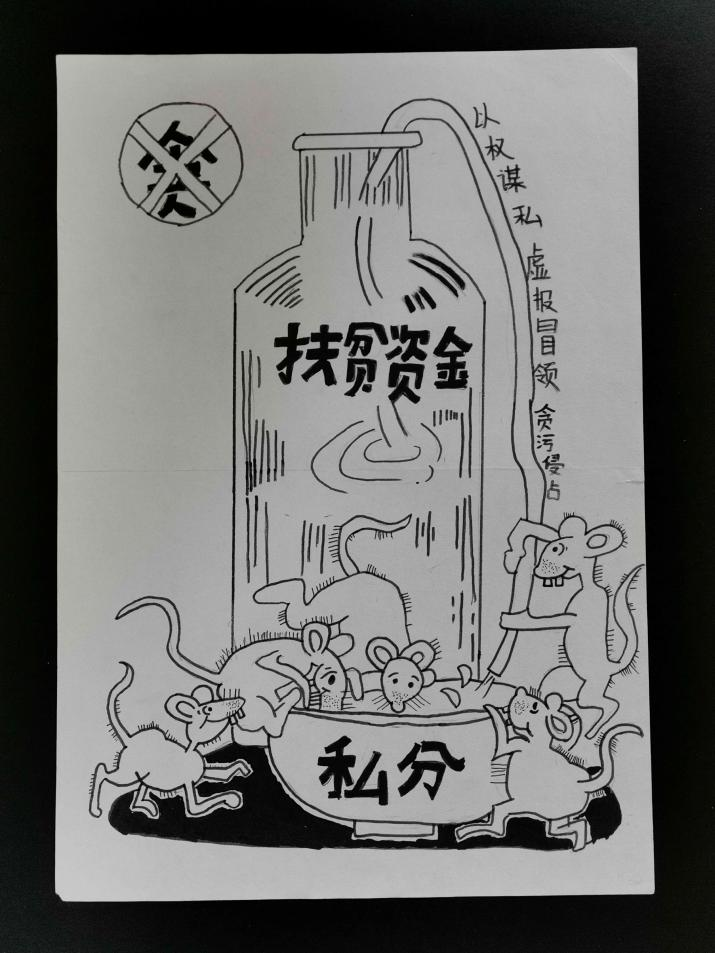 贪
以权谋私 虚报冒领 贪污侵占
扶贫资金
私分